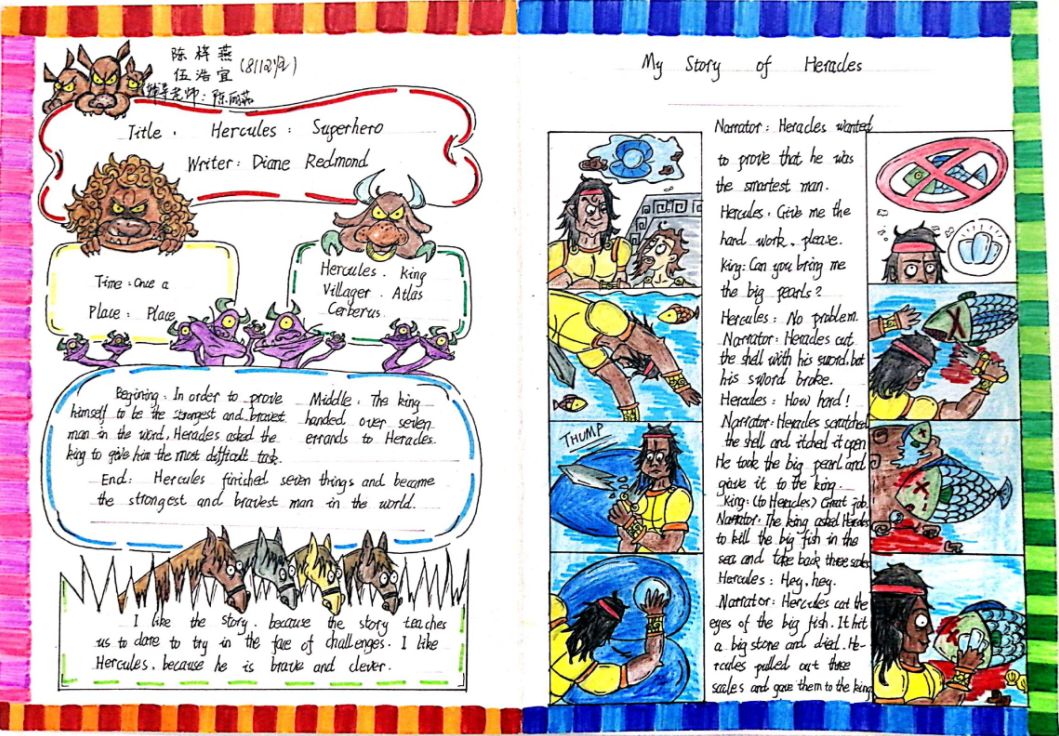 陈梓燕
伍浩宜 (8112班)
辅导老师：陈丽燕
Title: Hercules: Superhero
Writer: Diane Redmond
Time: Once a
Place: Place
Hercules. King
Villager. Atlas
Cerberus
Begining: In order to prove
himself to be the strongest and bravest
man in the word, Heracles asked the
king to give him the most difficult task.
Middle. The king
handed over seven
errands to Heracles.
End: Hercules finished seven things and became
the strongest and bravest man in the world.
I like the story. because the story teaches
us to dare to try in the face of challenges. I like
Hercules. because he is brave and clever.
My Story of Heracles
Narrator: Heracles wanted
to prove that he was
the smartest man.
Hercules. Give me the
hard work, please.
King: Can you bring me
the big pearls?
Hercules: No problem.
Narrator: Heracles cut
the shell with his sword. but
his sword broke.
Hercules: How hard!
Narrator: Heracles scratched
the shell and itched it open
He took the big pearl and
gave it to the king.
King: (to Heracles) Great job.
Narrator: The king asked Heracles
to kill the big fish in the
sea and take back three scales
Hercules: Hey, hey.
Narrator: Hercules cat the
eyes of the big fish. It hit
a big stone and died. He-
rcules pulled out three
scales and gave them to the king
THUMP